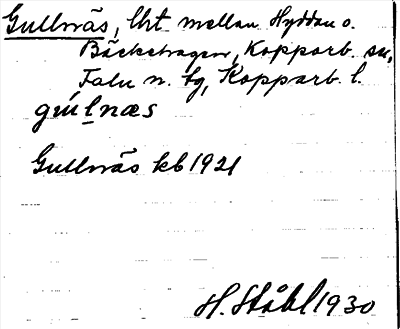 Gullnäs, lht mellan Hyddan o.
Bäckehagen, Kopparb. sn,
Falu n. tg, Kopparb. l.
gul̲næs
Gullnäs kb 1921
H. Ståhl 1930